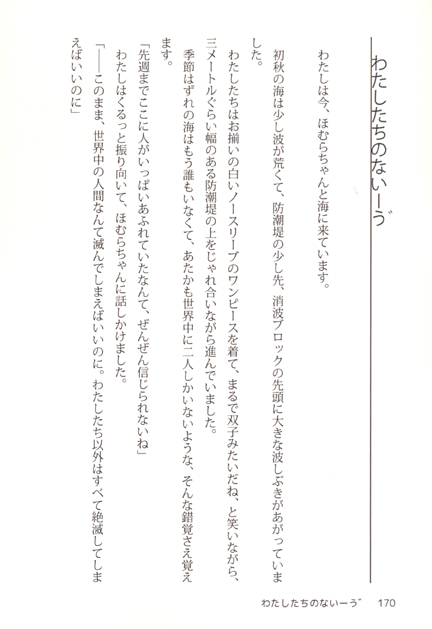 わたしたちのないーゔ
わたしは今、ほむらちゃんと海に来ています。
初秋の海は少し波が荒くて、防潮堤の少し先、消波ブロックの先頭に大きな波しぶきがあがっていま
した。
わたしたちはお揃いの白いノースリーブのワンピースを着て、まるで双子みたいだね、と笑いながら、
三メートルぐらい幅のある防潮堤の上をじゃれ合いながら進んでいました。
季節はずれの海はもう誰もいなくて、あたかも世界中に二人しかいないような、そんな錯覚さえ覚え
ます。
「先週までここに人がいっぱいあふれていたなんて、ぜんぜん信じられないね」
わたしはくるっと振り向いて、ほむらちゃんに話しかけました。
「――このまま、世界中の人間なんて滅んでしまえばいいのに。わたしたち以外はすべて絶滅してしま
えばいいのに」
わたしたちのないーゔ 170